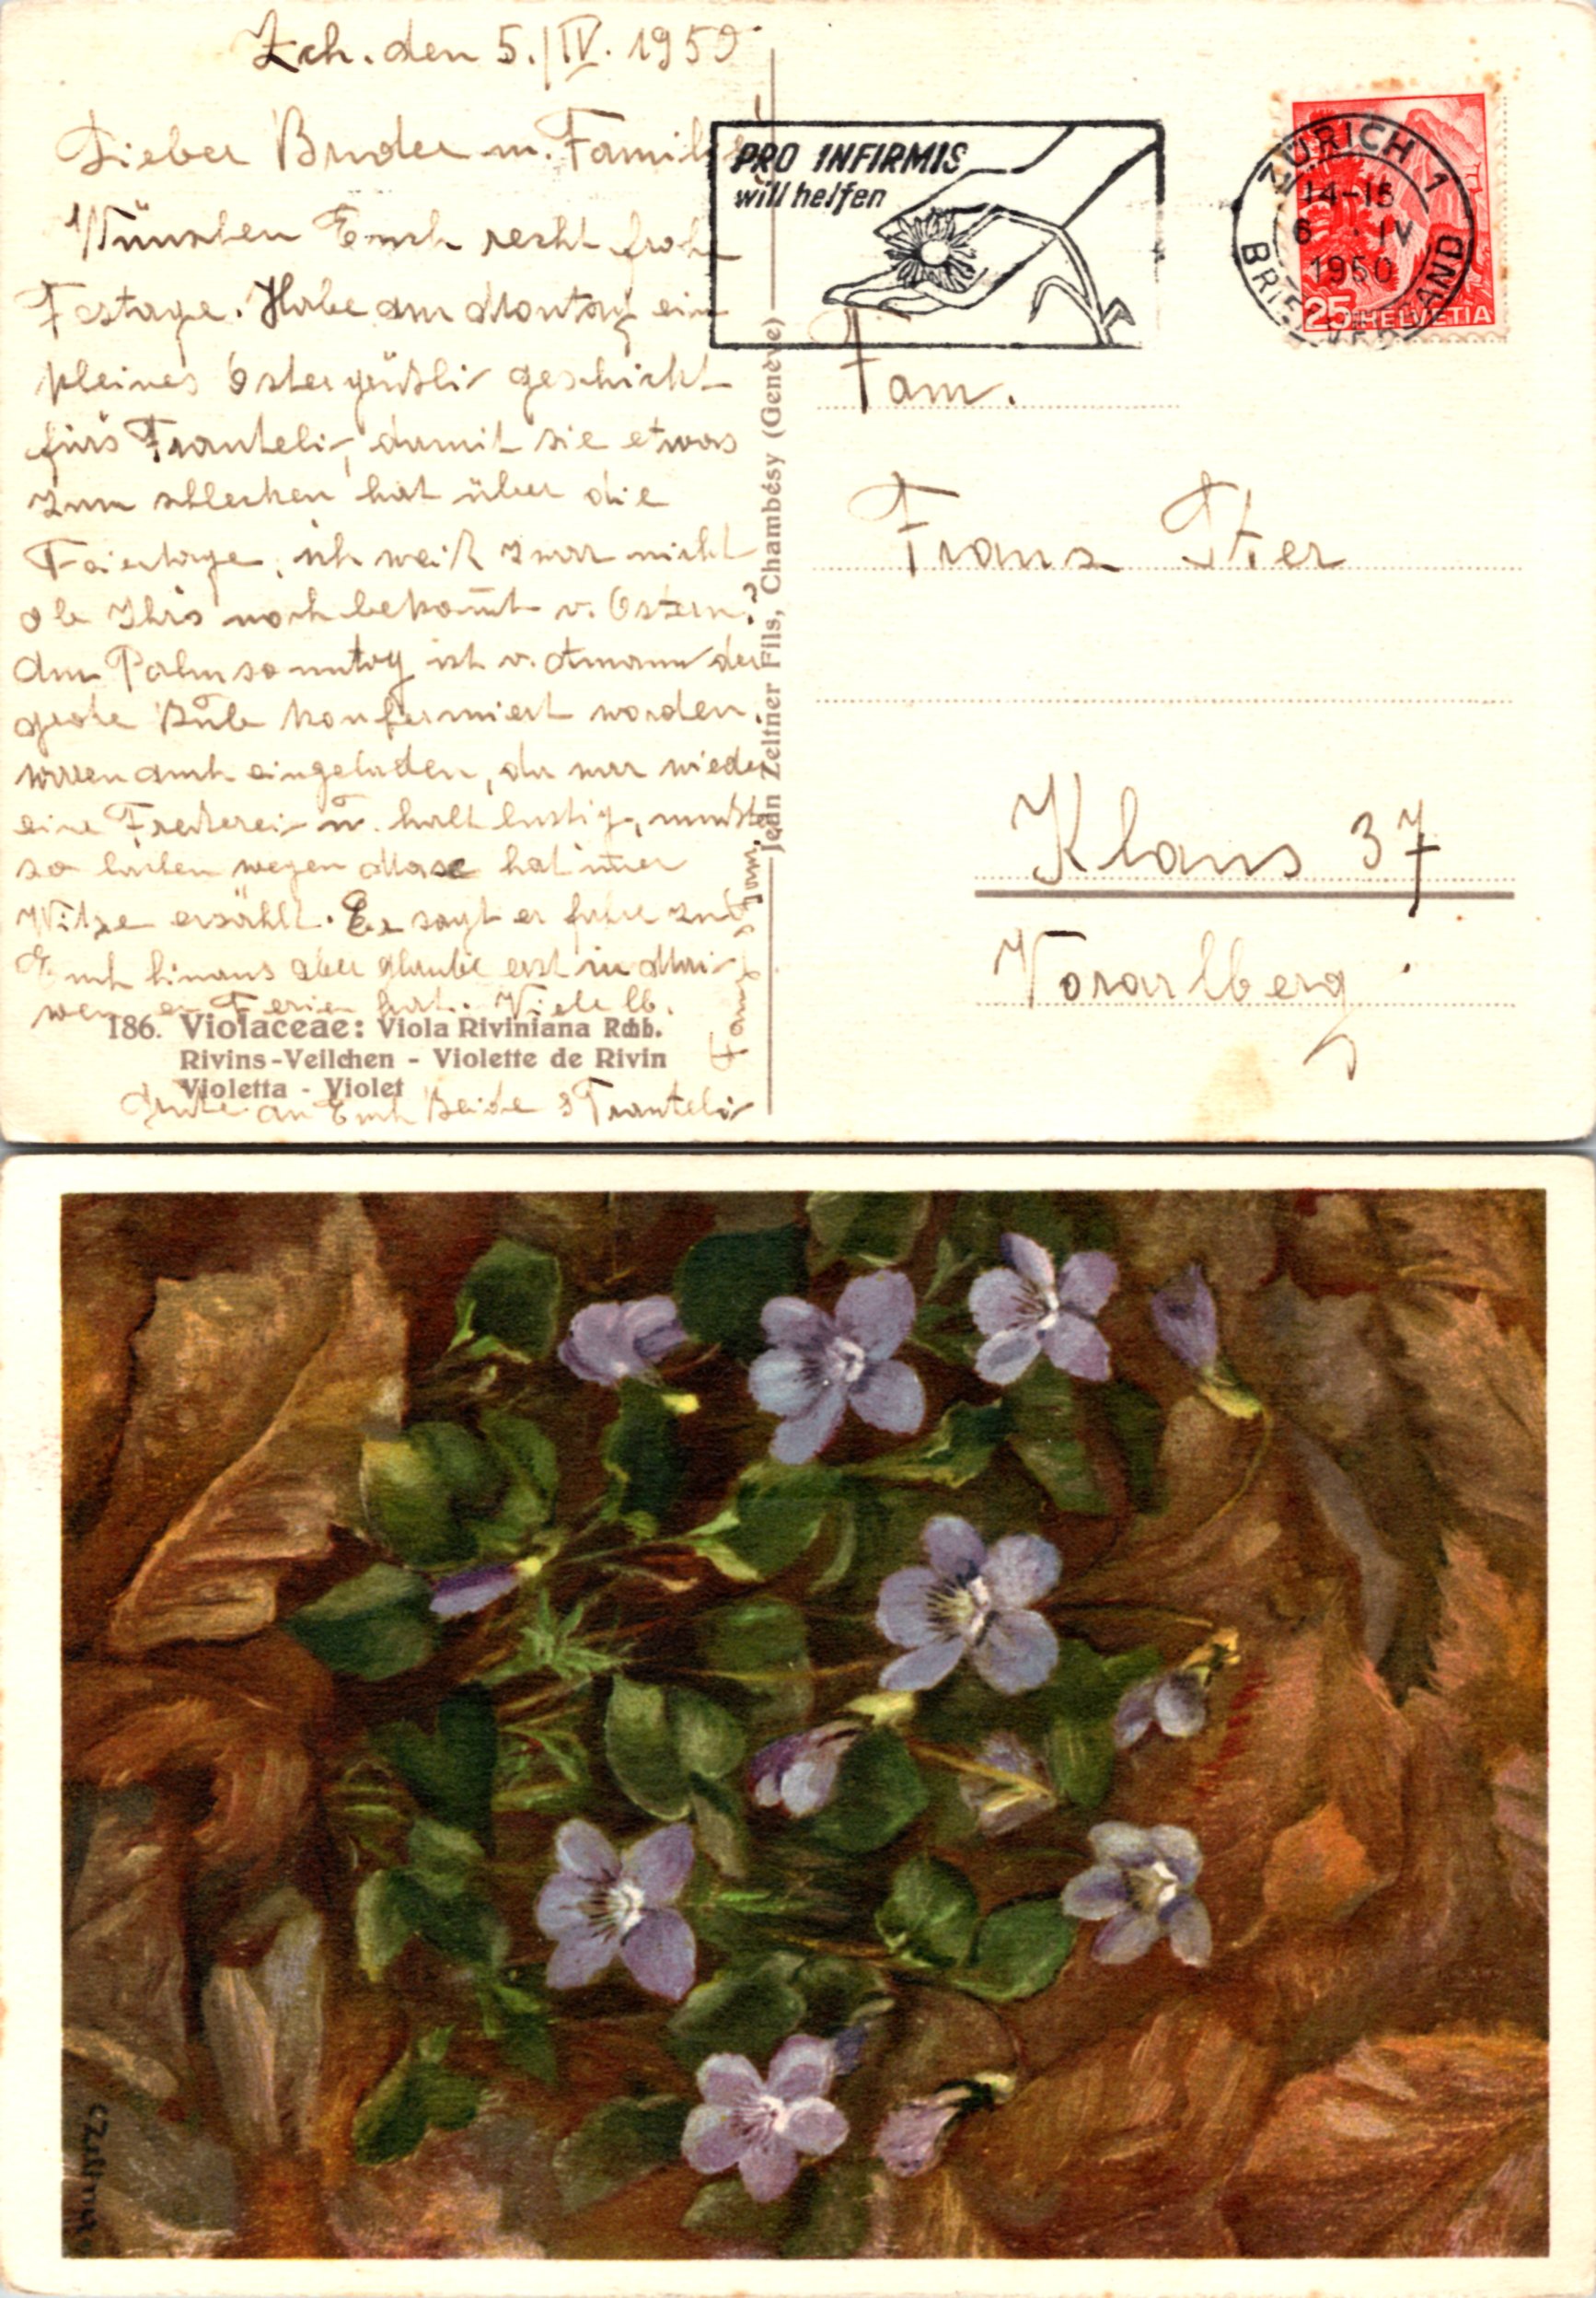 Zch. den 5./IV. 1950
Lieber Bruder u. Familie!
Wünschen Euch recht frohe
Festage. Habe am Montag ein
kleines Ostergrüßli geschickt
fürs Trauteli, damit sie etwas
zum schlecken hat über die
Feiertage, ich weiß zwar nicht
ob Ihrs noch bekommt v. Ostern?
Am Palmsonntag ist v. der
große Bub konfermiert worden,
waren auch eingeladen, da war wieder
eine u. halt lustig, mußte
so lachen wegen hat immer
Witze erzählt. Er sagt er fahre zu
Euch hinaus aber glaube erst im Mai
wen er Ferien hat. Viele lb.
Grüße an Euch Beide & Trauteli
186. Violaceae: Viola Riviniana Rchb.
Rivins-Veilchen - Violette de Rivin
Violetta - Violet
Jean Zeltner Fils, Chambésy (Genève)
PRO INFIRMIS
will helfen
ZÜRICH 1
14-15
6. IV
1950
BRIEFVERSAND
25 HELVETIA
Fam.
Franz
Klaus 37
Vorarlberg